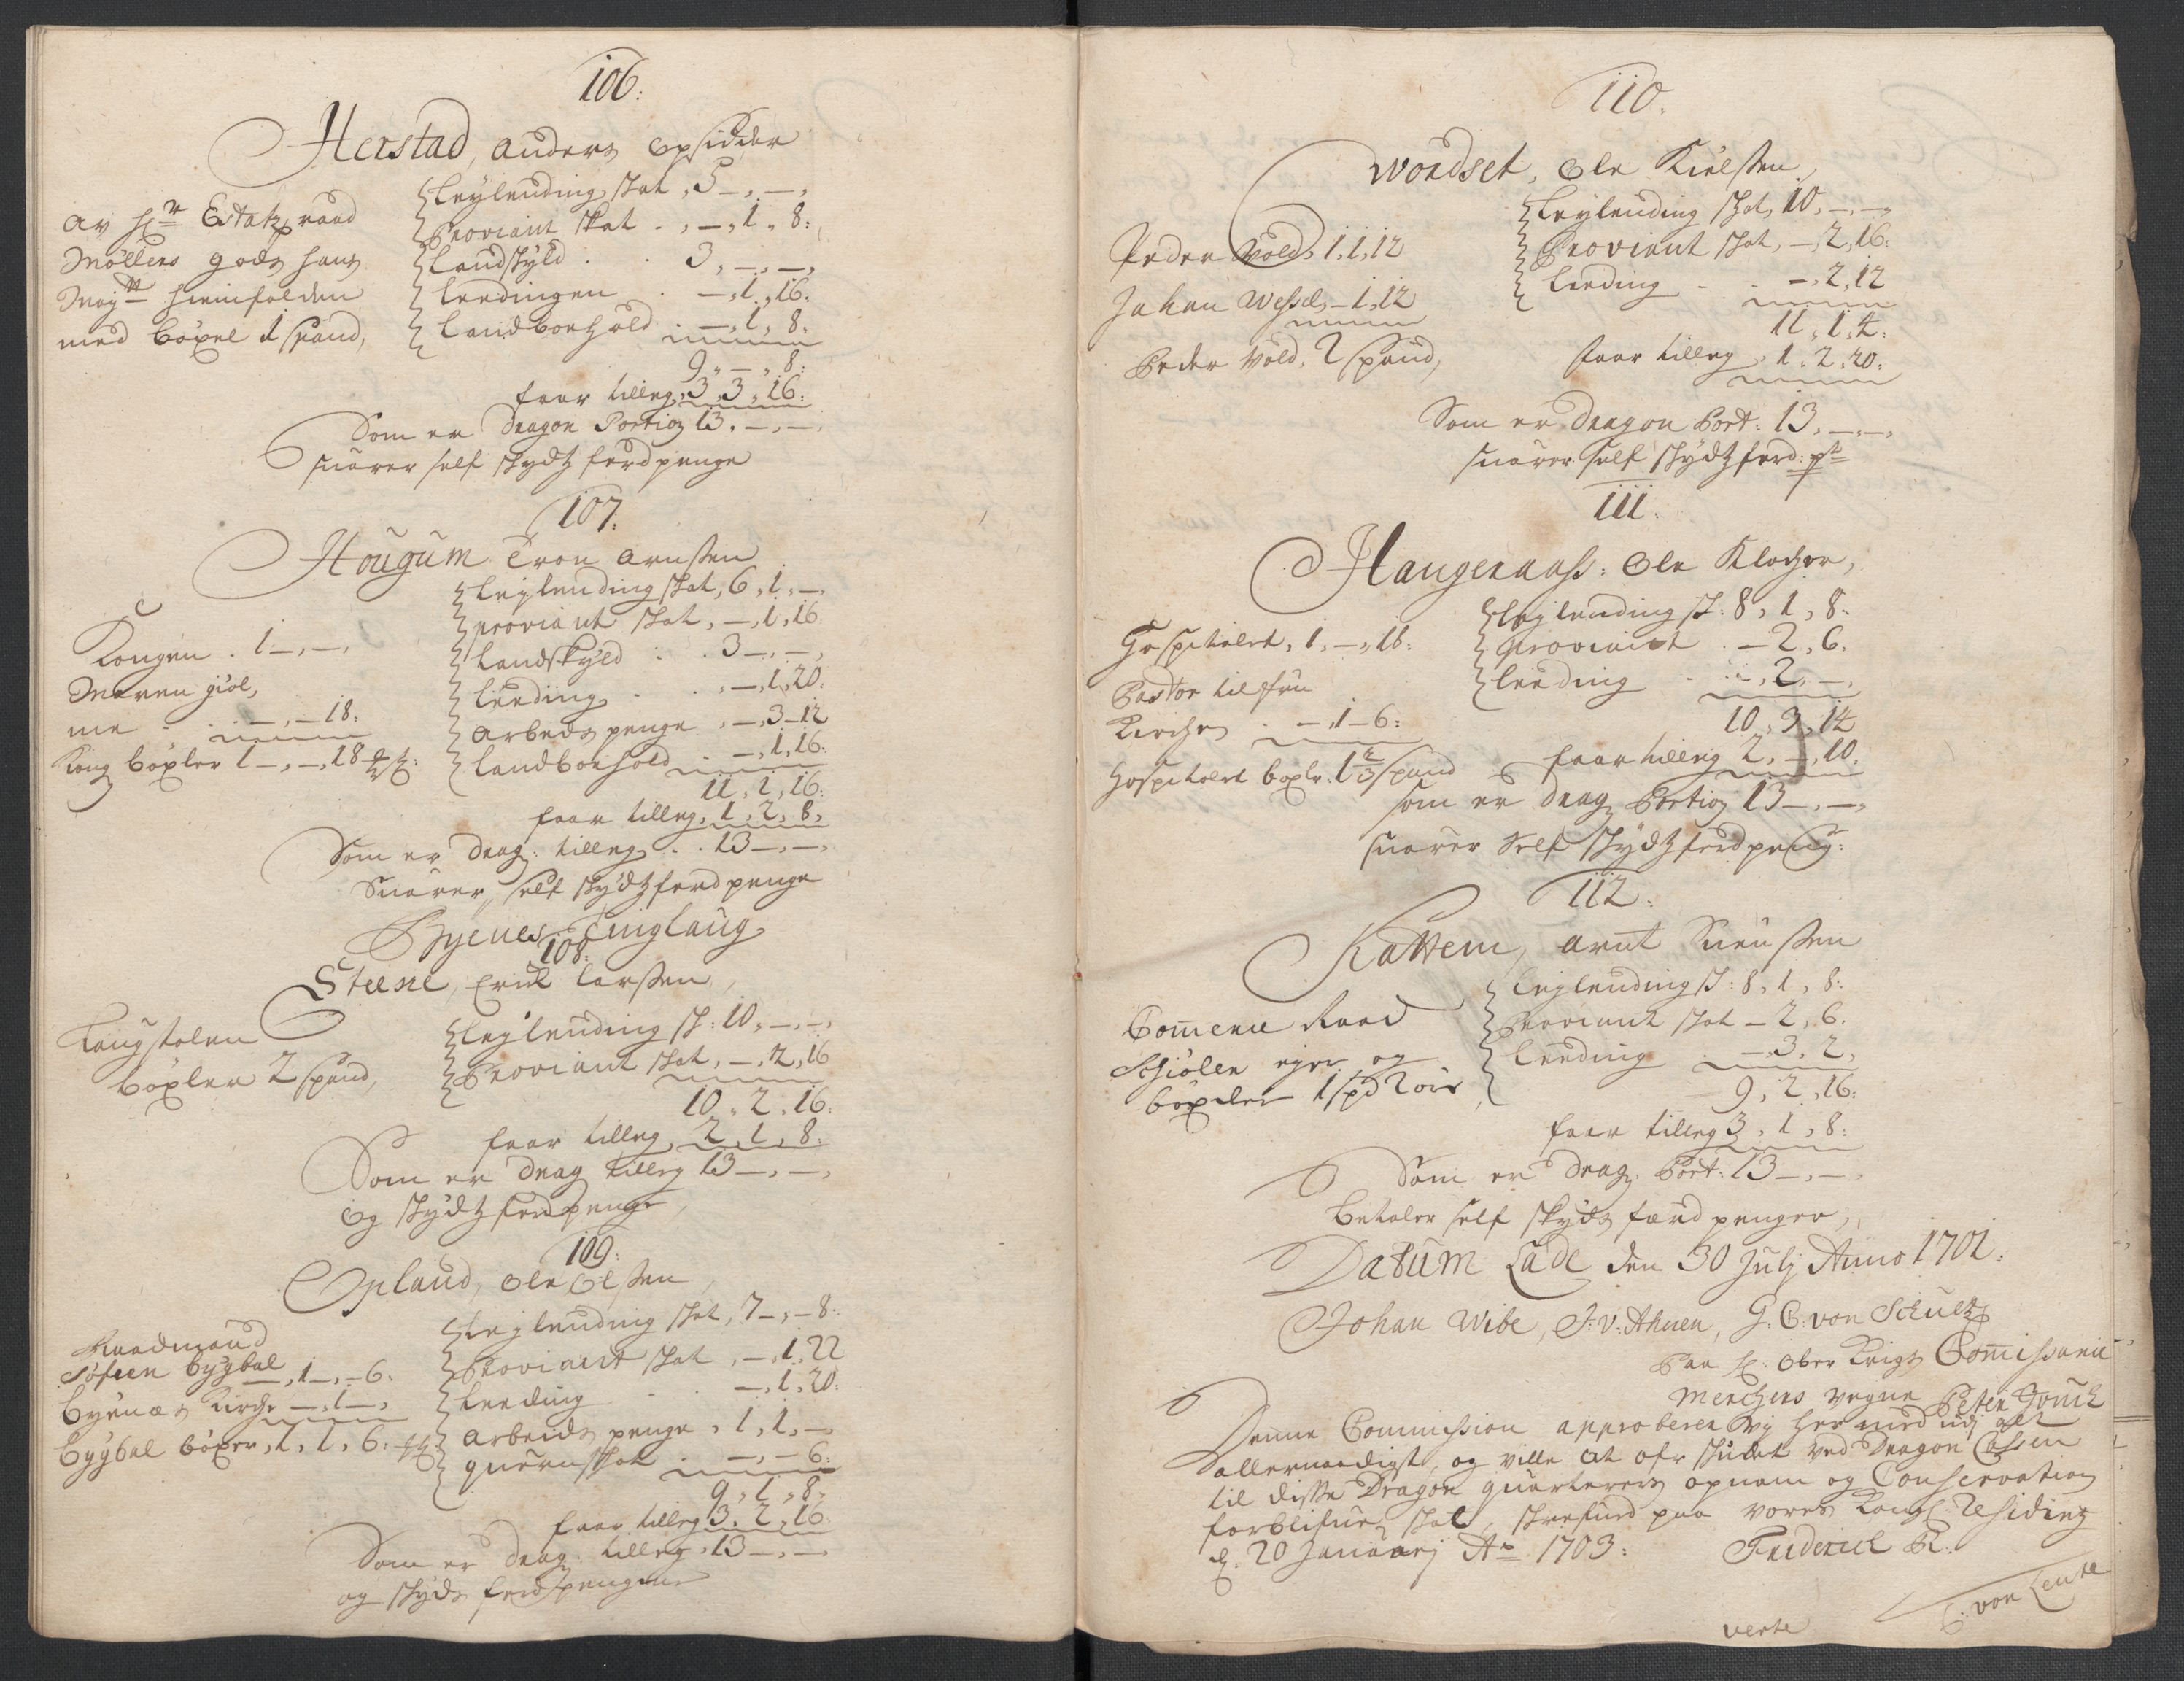 106:
Herstad, Anders Opsidder
Av Hr. Etatzraad
Möllers gods hans
Mayts hiemfalden
med böxel 1 spand,
Leylending skat, 5 –, –,
Proviant skat . , – , 1 , 8:
Landskyld . . 3, –, –,
Leedingen . –, 1, 16:
Landboehold . –, 1, 8:
9, –, 8:
faar tilleg, 3, 3, 16:
Som er Dragon Portion 13. –, –,
suarer self skydtzferdpenge
107:
Hougum Tron Arnssen
Kongen . 1 –, –,
Maren giöl,
me . . –, – 18:
Kong böxler 1 –, –, 18
Leylending skat, 6, 1, –,
proviant skat, –, 1, 16
Landskyld . . 3 –, –,
Leeding . . , –, 1, 20:
Arbeds penge , –, 3 – 12
Landboehold . –, 1, 16:
11, 1, 16:
faar tilleg, 1, 2, 8,
Som er Drag: tilleg . . 13 –, –,
Suarer, self skydtzferdpenge
Byenes Tinglaug
108:
Steene, Erick Larssen,
Laugstolen
böxler 2 spand,
Leylending sk: 10, –, –,
Proviant skat, –, 2, 16
10, 2, 16:
faar tilleg, 2, 1, 8:
Som er Drag tilleg 13 –, –,
og skydtzferdpenge,
109:
Opland, Ole Olssen
Raadmand
Söfren Bygbal –, 1 –, – 6:
Byenæs Kirche –, 1 –,
Bygbal böxer, 1, 1, 6:
Leylending skat, 7 –, – 8:
Proviant skat , –, 1, 22
Leeding . . –, 1, 20:
Arbeids penge , 1, 1, –
quernskat . –, – 6:
9, 1, 8,
faar tilleg 3, 2, 16
Som er Drag: tilleg, 13 –, –
og skyds ferdspengene
110.
Wondset, Ole Kielssen,
Peder Vold, 1, 1, 12
Johan Wessel, – 1, 12
Peder Vold, 2 spand,
Leylending skat, 10, –, –,
Proviant skat, –, 2, 16:
Leeding . . –, 2, 12
11, 1, 4:
faar tilleg, 1, 2, 20:
Som er Dragon Port: 13, –, –,
suarer self skydtzferd: p:
111.
Haugenaass: Ole Klocher,
Hospitalet, 1, –, 18:
Pastor til frue
Kirchen . –, 1 – 6:
Hospitalet boxler: 1 2/3 spand
Leylending sk: 8, 1, 8:
Proviant . – 2, 6.
Leeding . . –, 2, –,
10, 3, 14
faar tilleg 2, –, 10.
som er Drag Portion 13 –, –,
suarer self skydtzferdpeng:
112:
Kattem, Arnt Suenssen
Comerce Raad
Schiölen ejer og
böxler 1 spd 2 ör
Leylending s: 8, 1, 8:
Proviant skat – 2, 6.
Leeding . –, 3, 2,
9, 2, 16:
faar tilleg 3, 1, 8:
Som er Drag: Port: 13 –, –
Betaler self skyds færd penger,
Datum Lade den 30 Julj Anno 1701:
Johan Wibe, J: v: Ahnen, G: C: von Schultz
Paa H: Ober Krigs Commissarie
Merchers vegne Peter Jouch
Denne Commission approberer vy her med udj alt
allernaadigst, og ville at ofr skudet ved Dragon Cassen
til disse Dragon quarterers opnam og Conservation
forblifue skal, skrefued paa vores Kongl: Residing
d. 20 Januarj Ao 1703: Friderich R.
C: von Lente
verte